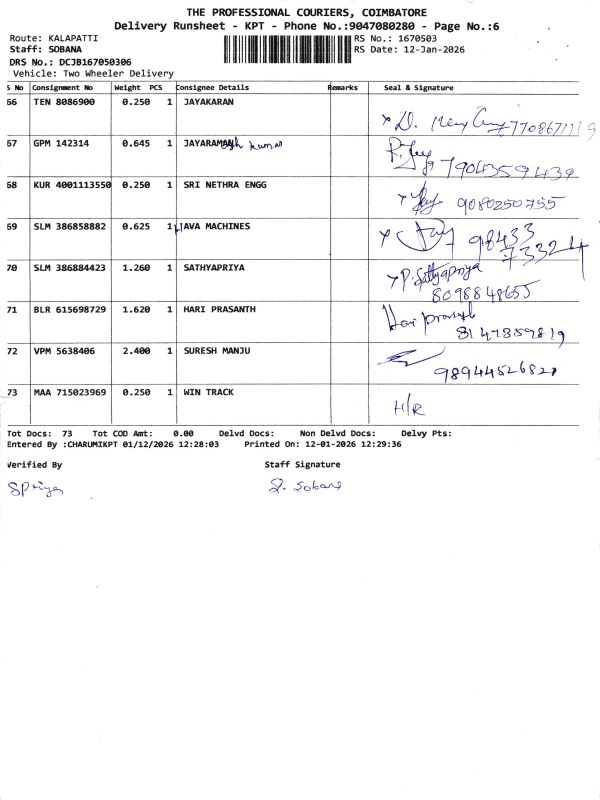 THE PROFESSIONAL COURIERS, COIMBATORE
Delivery Runsheet - KPT - Phone No.:9047080280 - Page No.:6
Route: KALAPATTI RS No.: 1670503
Staff: SOBANA RS Date: 12-Jan-2026
DRS No.: DCJB167050306
Vehicle: Two Wheeler Delivery
S No Consignment No Weight PCS Consignee Details Remarks Seal & Signature
66 TEN 8086900 0.250 1 JAYAKARAN
67 GPM 142314 0.645 1 JAYARAMAN kumar
7904359439
68 KUR 4001113550 0.250 1 SRI NETHRA ENGG
9080250755
69 SLM 386858882 0.625 1 JAVA MACHINES
98433
73324
70 SLM 386884423 1.260 1 SATHYAPRIYA
P. Sathyapriya
8098848655
71 BLR 615698729 1.620 1 HARI PRASANTH
Hari prasanth
8147859819
72 VPM 5638406 2.400 1 SURESH MANJU
73 MAA 715023969 0.250 1 WIN TRACK
H/R
Tot Docs: 73 Tot COD Amt: 0.00 Delvd Docs: Non Delvd Docs: Delvy Pts:
Entered By :CHARUMIKPT 01/12/2026 12:28:03 Printed On: 12-01-2026 12:29:36
Verified By Staff Signature
S Priya S. Sobana